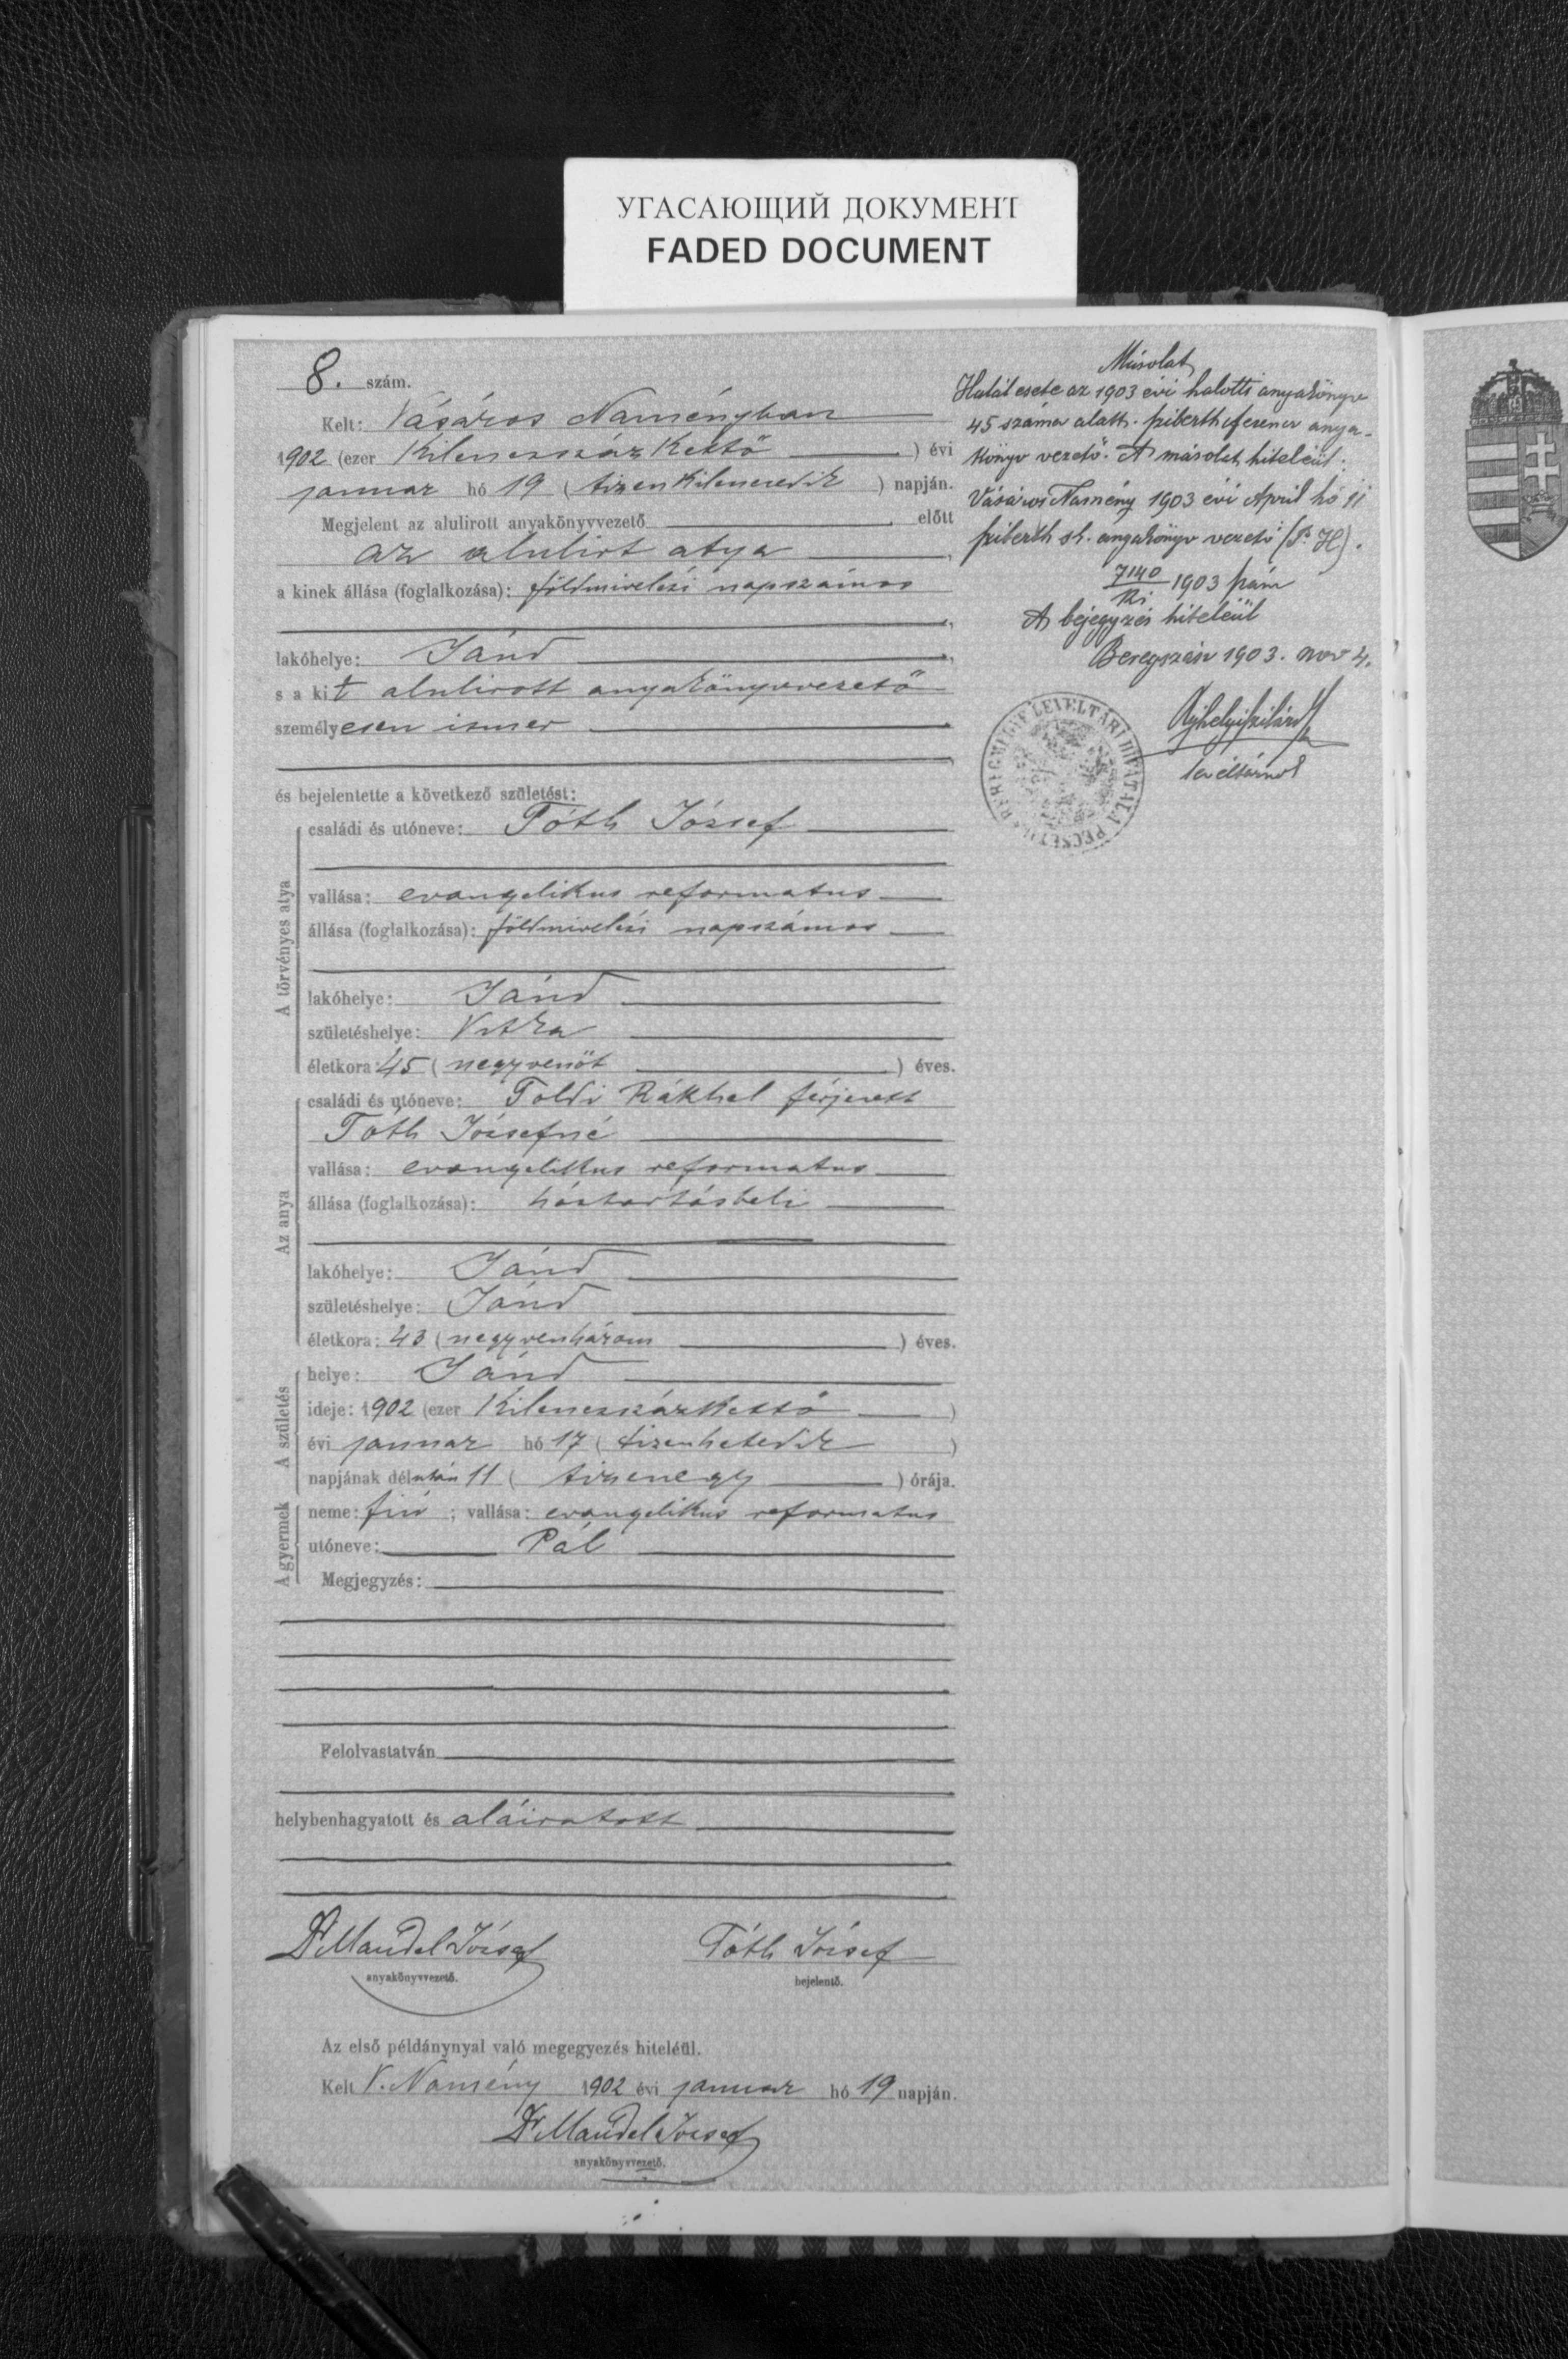 УГАСАЮЩИЙ ДОКУМЕНТ
FADED DOCUMENT
8. szám.
Kelt: Vásáros Naményban
1902 (ezer Kilenczszáz Kettő) évi
januar hó 19 (tizenkilenczedik) napján.
Megjelent az alulirott anyakönyvvezető előtt
az alulirt atya,
a kinek állása (foglalkozása): földmivelési napszámos
lakóhelye: Jánd,
s a kit alulirott anyakönyvvezető
személyesen ismer
és bejelentette a következő születést:
A törvényes atya
családi és utóneve: Tóth József
vallása: evangelikus reformatus
állása (foglalkozása): földmivelési napszámos
lakóhelye: Jánd
születéshelye: Vitka
életkora: 45 (negyvenöt) éves.
Az anya
családi és utóneve: Toldi Rákhel férjezett
Tóth Józsefné
vallása: evangelikus reformatus
állása (foglalkozása): háztartásbeli
lakóhelye: Jánd
születéshelye: Jánd
életkora: 43 (negyvenhárom) éves.
A születés
helye: Jánd
ideje: 1902 (ezer Kilenczszázkettő)
évi januar hó 17 (tizenhetedik)
napjának délután 11 (tizenegy) órája.
A gyermek
neme: fiú; vallása: evangelikus reformatus
utóneve: Pál
Megjegyzés:
Felolvastatván
helybenhagyatott és aláiratott
Dr Mandel József
anyakönyvvezető.
Tóth József
bejelentő.
Az első példánynyal való megegyezés hiteléül.
Kelt V. Namény 1902 évi januar hó 19 napján.
Dr Mandel József
anyakönyvvezető.
Másolat
Halál esete az 1903 évi halotti anyakönyv
45 száma alatt. Ferencz anya-
könyv vezető. A másolat hiteléül:
Vásáros Namény 1903 évi April hó 11
sk. anyakönyv vezető (P. H.).
7140 1903 szám
A bejegyzés hiteléül
Beregszász 1903. nov 4.
levéltárnok
LEVÉLTÁRI HIVATALA PECSÉTJE